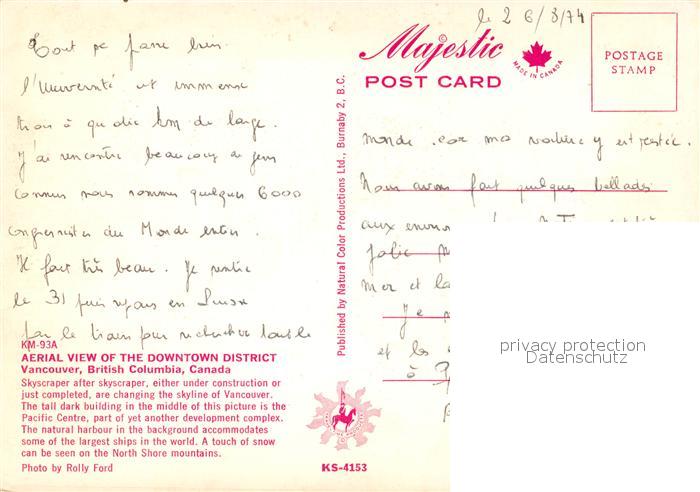 le 26/8/74
Tout se passe bien.
l'Université est immense
trois à quatre km de large.
J'ai rencontré beaucoup de gens
comme nous sommes quelques 6000
congressistes du Monde entier.
Il fait très beau. Je rentre
le 31 puis en
par le train pour rechercher tout le
KM-93A
AERIAL VIEW OF THE DOWNTOWN DISTRICT
Vancouver, British Columbia, Canada
Skyscraper after skyscraper, either under construction or
just completed, are changing the skyline of Vancouver.
The tall dark building in the middle of this picture is the
Pacific Centre, part of yet another development complex.
The natural harbour in the background accommodates
some of the largest ships in the world. A touch of snow
can be seen on the North Shore mountains.
Photo by Rolly Ford
Published by Natural Color Productions Ltd., Burnaby 2, B.C.
Majestic
POST CARD
MADE IN CANADA
POSTAGE
STAMP
monde car ma voiture y est restée.
Nous avons fait quelques ballades
aux
jolie
mer et la
Je
et les
à
KS-4153
privacy protection
Datenschutz